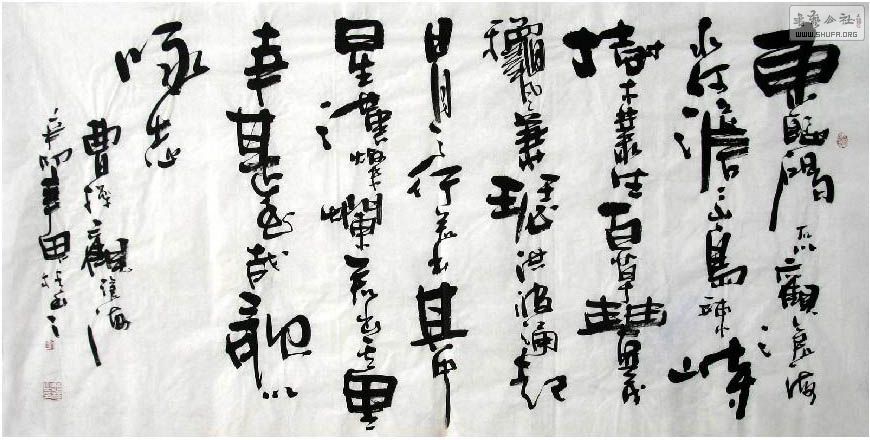 書藝公社
WWW.SHUFA.ORG
東臨碣石觀滄海
水何澹々山島竦峙
樹木叢生百草豐茂
龝風蕭瑟洪波涌起
日月之行若出其中
星漢燦爛若出其里
幸甚至哉歌以
咏志
曹操觀滄海
辛卯